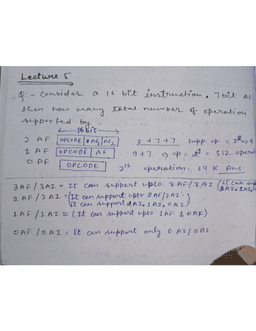 Lecture 5
Q - Consider a 16 bit instruction, 7 bit AF
then how many total number of operation
supported by
16 bit
2 AF OPCODE AF1 AF2 2+7+7 supp. op =
1 AF OPCODE AF 9+7 op = 2^9 = 512 operat
0 AF OPCODE 2^16 operation. 64 K Ans.
3AF/3AI - It can support upto 3AF/3AI
2AF/2AI - It can support upto 2AF/2AI.
It can support 2AI, 1AI, 0AI
1AF/1AI = (It can support upto 1AF & 0AF)
0AF/0AI = It can support only 0AI/0AF.